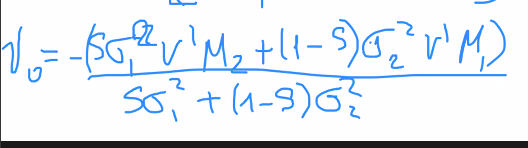 V₀ = -(Sσ₁² V' M₂ + (1-S)σ₂² V' M₁) / (Sσ₁² + (1-S)σ₂²)